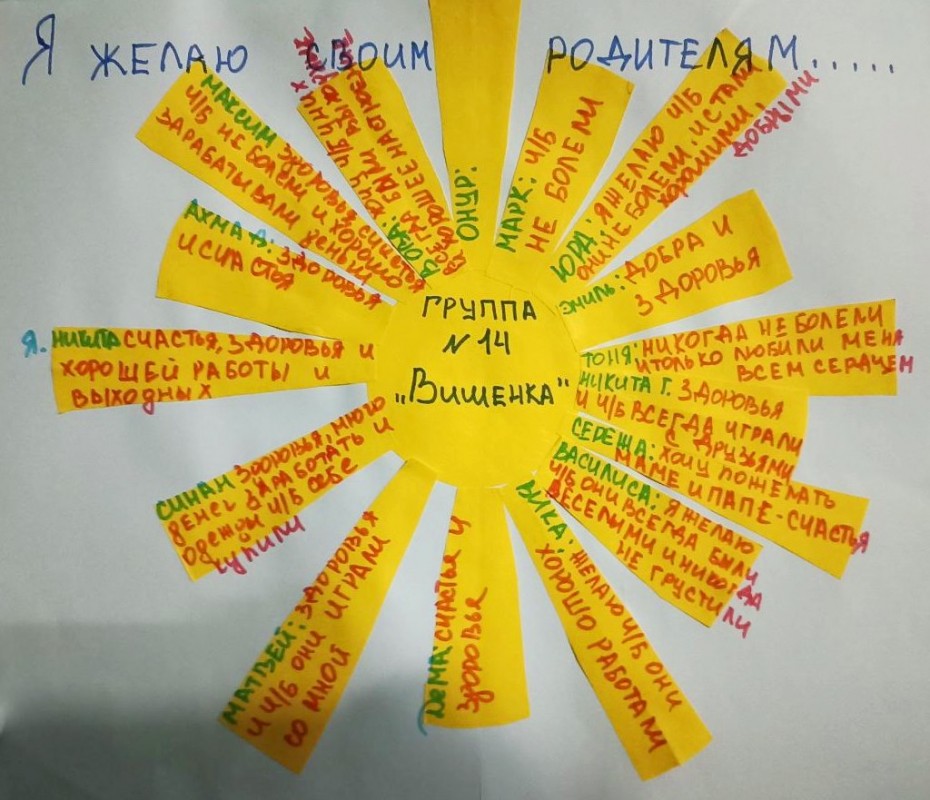 Я ЖЕЛАЮ СВОИМ РОДИТЕЛЯМ.....
ГРУППА
N 14
„Вишенка"
ОНУР:
МАРК: Ч/Б
НЕ БОЛЕЛИ
ЮРА: Я ЖЕЛАЮ Ч/Б
ОНИ НЕ БОЛЕЛИ, И СТАЛИ
ХОРОШИМИ,
ДОБРЫМИ
ЭМИЛЬ: ДОБРА И
ЗДОРОВЬЯ
ТОНЯ: НИКОГДА НЕ БОЛЕЛИ
И ТОЛЬКО ЛЮБИЛИ МЕНЯ
ВСЕМ СЕРДЦЕМ
НИКИТА Г. ЗДОРОВЬЯ
И Ч/Б ВСЕГДА ИГРАЛИ
С ДРУЗЬЯМИ
СЕРЕЖА: ХОЧУ ПОЖЕЛАТЬ
МАМЕ И ПАПЕ - СЧАСТЬЯ
ВАСИЛИСА: Я ЖЕЛАЮ
Ч/Б ОНИ ВСЕГДА БЫЛИ
ВЕСЕЛЫМИ И НИКОГДА
НЕ ГРУСТИЛИ
ВИКА: ЖЕЛАЮ Ч/Б ОНИ
ХОРОШО РАБОТАЛИ
ДЕМА: СЧАСТЬЯ И
ЗДОРОВЬЯ
МАТВЕЙ: ЗДОРОВЬЯ
И Ч/Б ОНИ ИГРАЛИ
СО МНОЙ
СИНАН ЗДОРОВЬЯ, МНОГО
ДЕНЕГ ЗАРАБОТАТЬ И
ОДЕЖДЫ Ч/Б СЕБЕ
КУПИЛИ
Я. НИКИТА СЧАСТЬЯ, ЗДОРОВЬЯ И
ХОРОШЕЙ РАБОТЫ И
ВЫХОДНЫХ
АХМАД: ЗДОРОВЬЯ
И СЧАСТЬЯ
МАКСИМ ЗДОРОВЬЯ, СЧАСТЬЯ
Ч/Б НЕ БОЛЕЛИ И ХОРОШО
ЗАРАБАТЫВАЛИ ДЕНЬГИ
ВОВА: ХОЧУ Ч/Б У НИХ
ВСЕГДА БЫЛИ
ХОРОШЕЕ НА